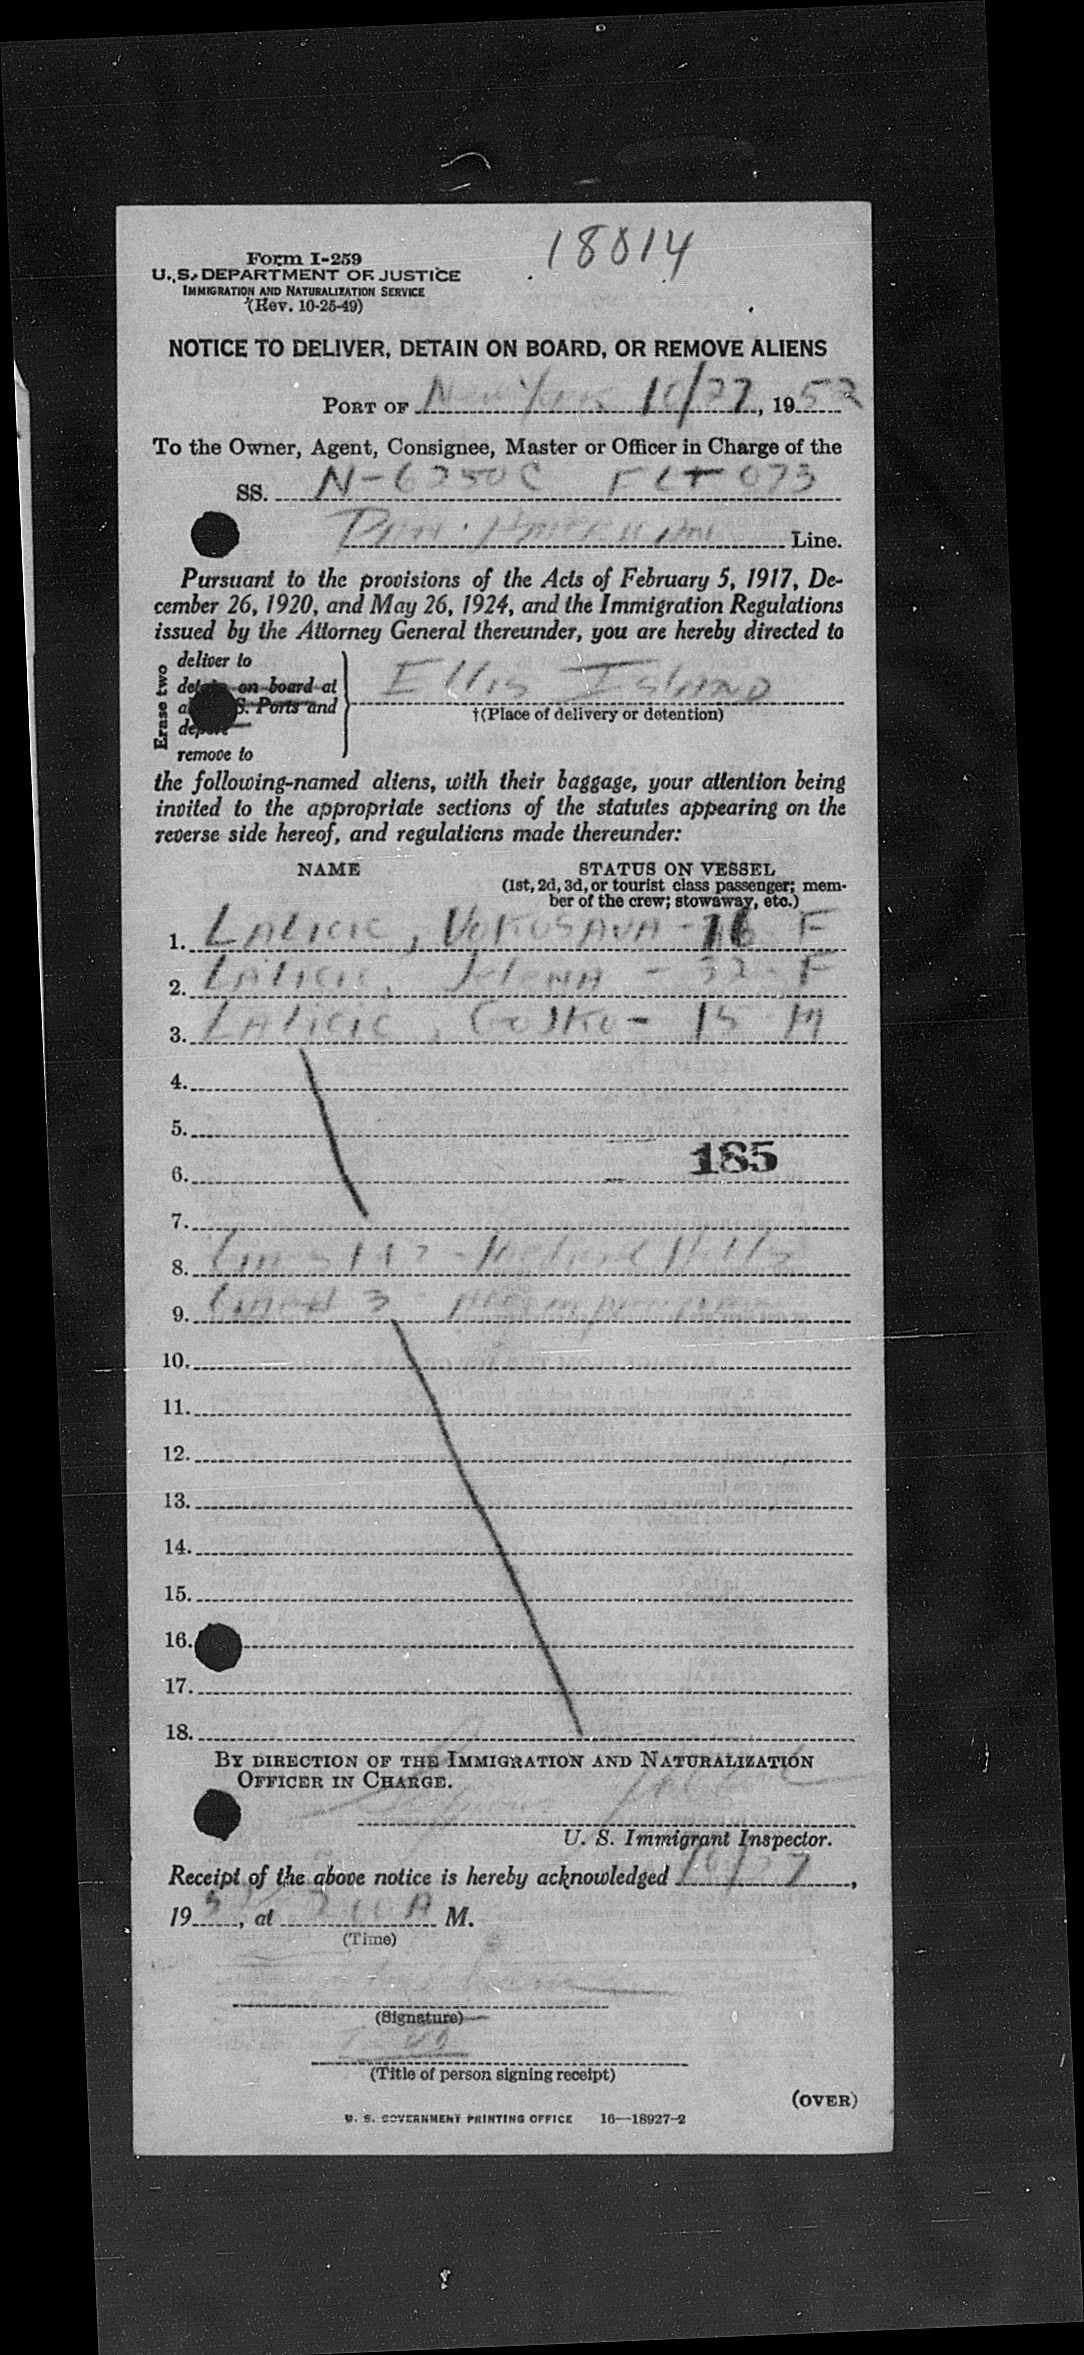 18014
Form I-259
U. S. DEPARTMENT OF JUSTICE
IMMIGRATION AND NATURALIZATION SERVICE
(Rev. 10-25-49)
NOTICE TO DELIVER, DETAIN ON BOARD, OR REMOVE ALIENS
PORT OF New York 10/27, 1952
To the Owner, Agent, Consignee, Master or Officer in Charge of the
SS. N-6250C FLT 073
Pan. American Line.
Pursuant to the provisions of the Acts of February 5, 1917, De-
cember 26, 1920, and May 26, 1924, and the Immigration Regulations
issued by the Attorney General thereunder, you are hereby directed to
Erase two
deliver to
on board at
S. Ports and
depart
remove to
Ellis Island
†(Place of delivery or detention)
the following-named aliens, with their baggage, your attention being
invited to the appropriate sections of the statutes appearing on the
reverse side hereof, and regulations made thereunder:
NAME STATUS ON VESSEL
(1st, 2d, 3d, or tourist class passenger; mem-
ber of the crew; stowaway, etc.)
1. LALICIC, VUKOSAVA - 16 F
2. LALICIC, Jelena - 32 - F
3. LALICIC, GOJKO - 15 M
4.
5.
185
6.
7.
8. Lines 1 & 2 - Medical Holds
9. Line # 3 - Accompanying
10.
11.
12.
13.
14.
15.
16.
17.
18.
BY DIRECTION OF THE IMMIGRATION AND NATURALIZATION
OFFICER IN CHARGE.
U. S. Immigrant Inspector.
Receipt of the above notice is hereby acknowledged 10/27,
19 52, at A M.
(Time)
(Signature)
(Title of person signing receipt)
(OVER)
U. S. GOVERNMENT PRINTING OFFICE 16—18927-2